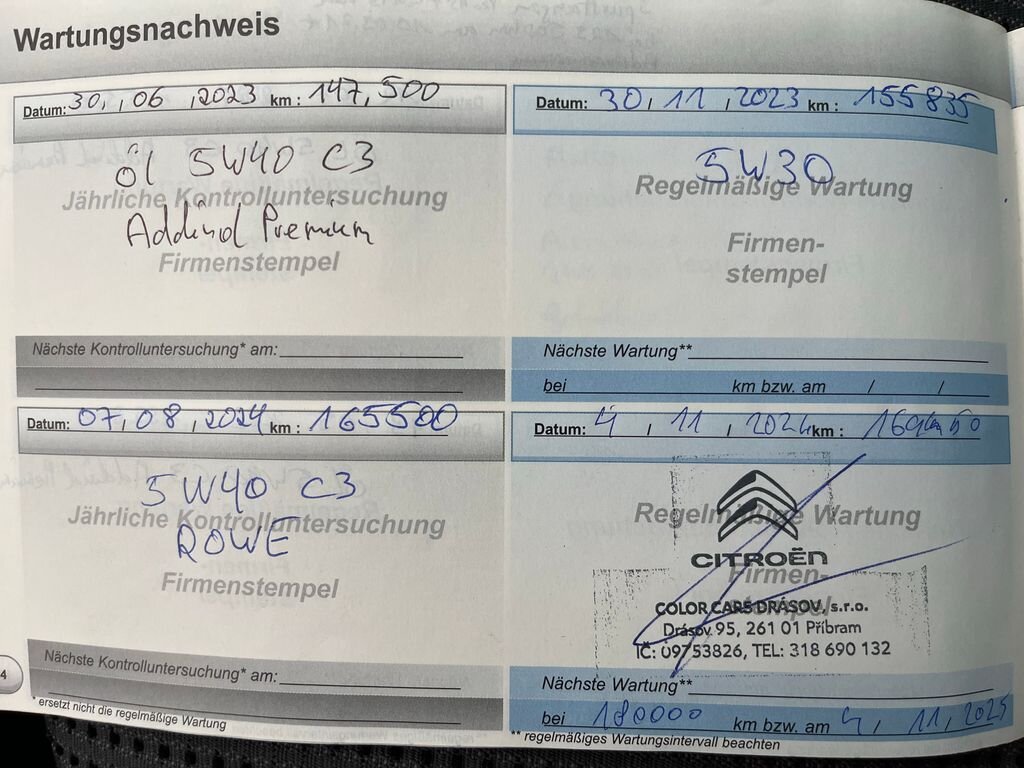 Wartungsnachweis
Datum: 30, 06, 2023 km: 147,500
Öl 5W40 C3
Jährliche Kontrolluntersuchung
Addinol Premium
Firmenstempel
Nächste Kontrolluntersuchung* am:
Datum: 30, 11, 2023 km: 155835
5W30
Regelmäßige Wartung
Firmen-
stempel
Nächste Wartung**
bei km bzw. am / /
Datum: 07, 08, 2024 km: 165500
5W40 C3
Jährliche Kontrolluntersuchung
ROWE
Firmenstempel
Nächste Kontrolluntersuchung* am:
* ersetzt nicht die regelmäßige Wartung
Datum: 4, 11, 2024 km:
Regelmäßige Wartung
CITROËN
Firmen-
stempel
COLOR CARS DRÁSOV, s.r.o.
Drásov 95, 261 01 Příbram
IČ: 09753826, TEL: 318 690 132
Nächste Wartung**
bei 180000 km bzw. am 4, 11, 2025
** regelmäßiges Wartungsintervall beachten
4